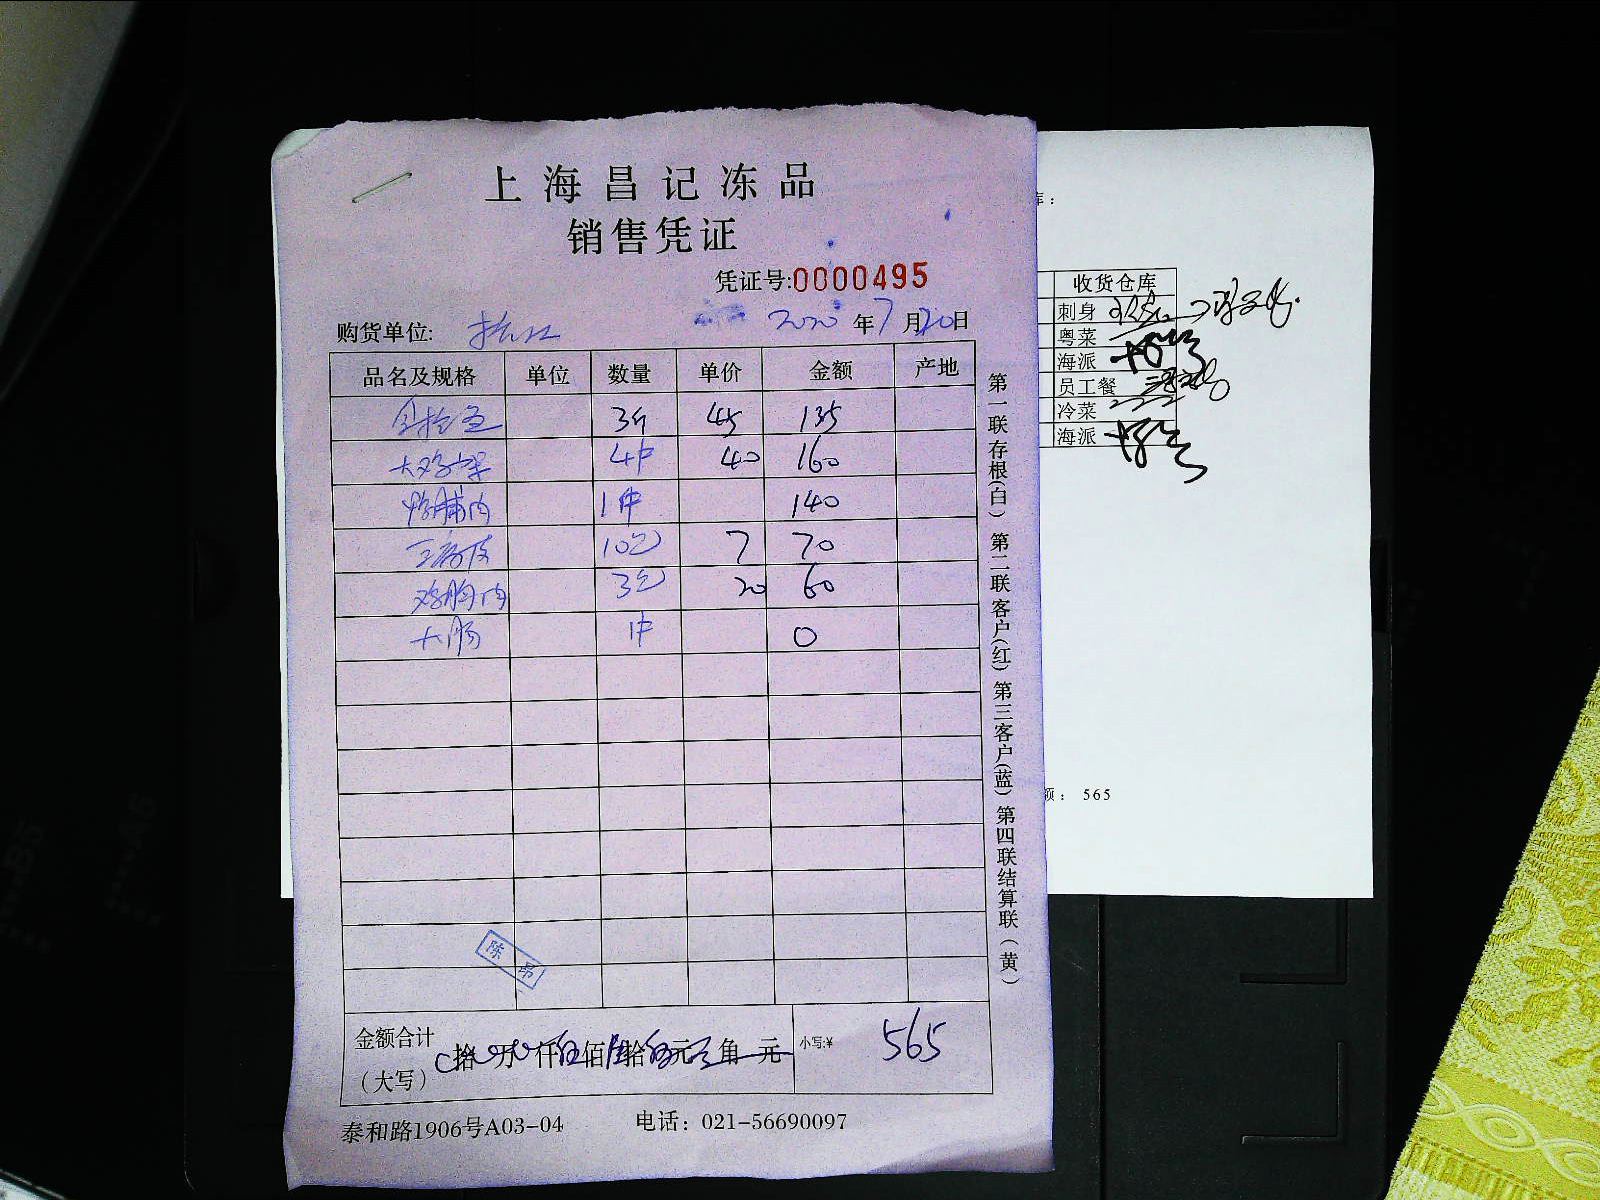 上海昌记冻品
销售凭证
凭证号:0000495
购货单位: 2020年7月20日
品名及规格 单位 数量 单价 金额 产地
3斤 45 135
大鸡架 4件 40 160
鸭脯肉 1件 140
10包 7 70
鸡胸肉 3包 20 60
大肠 1件 0
陈
金额合计(大写) 拾 万 仟伍佰陆拾伍元 角 元 小写:¥ 565
泰和路1906号A03-04 电话: 021-56690097
第一联存根(白) 第二联客户(红) 第三客户(蓝) 第四联结算联(黄)
库:
收货仓库
刺身
粤菜
海派
员工餐
冷菜
海派
额: 565